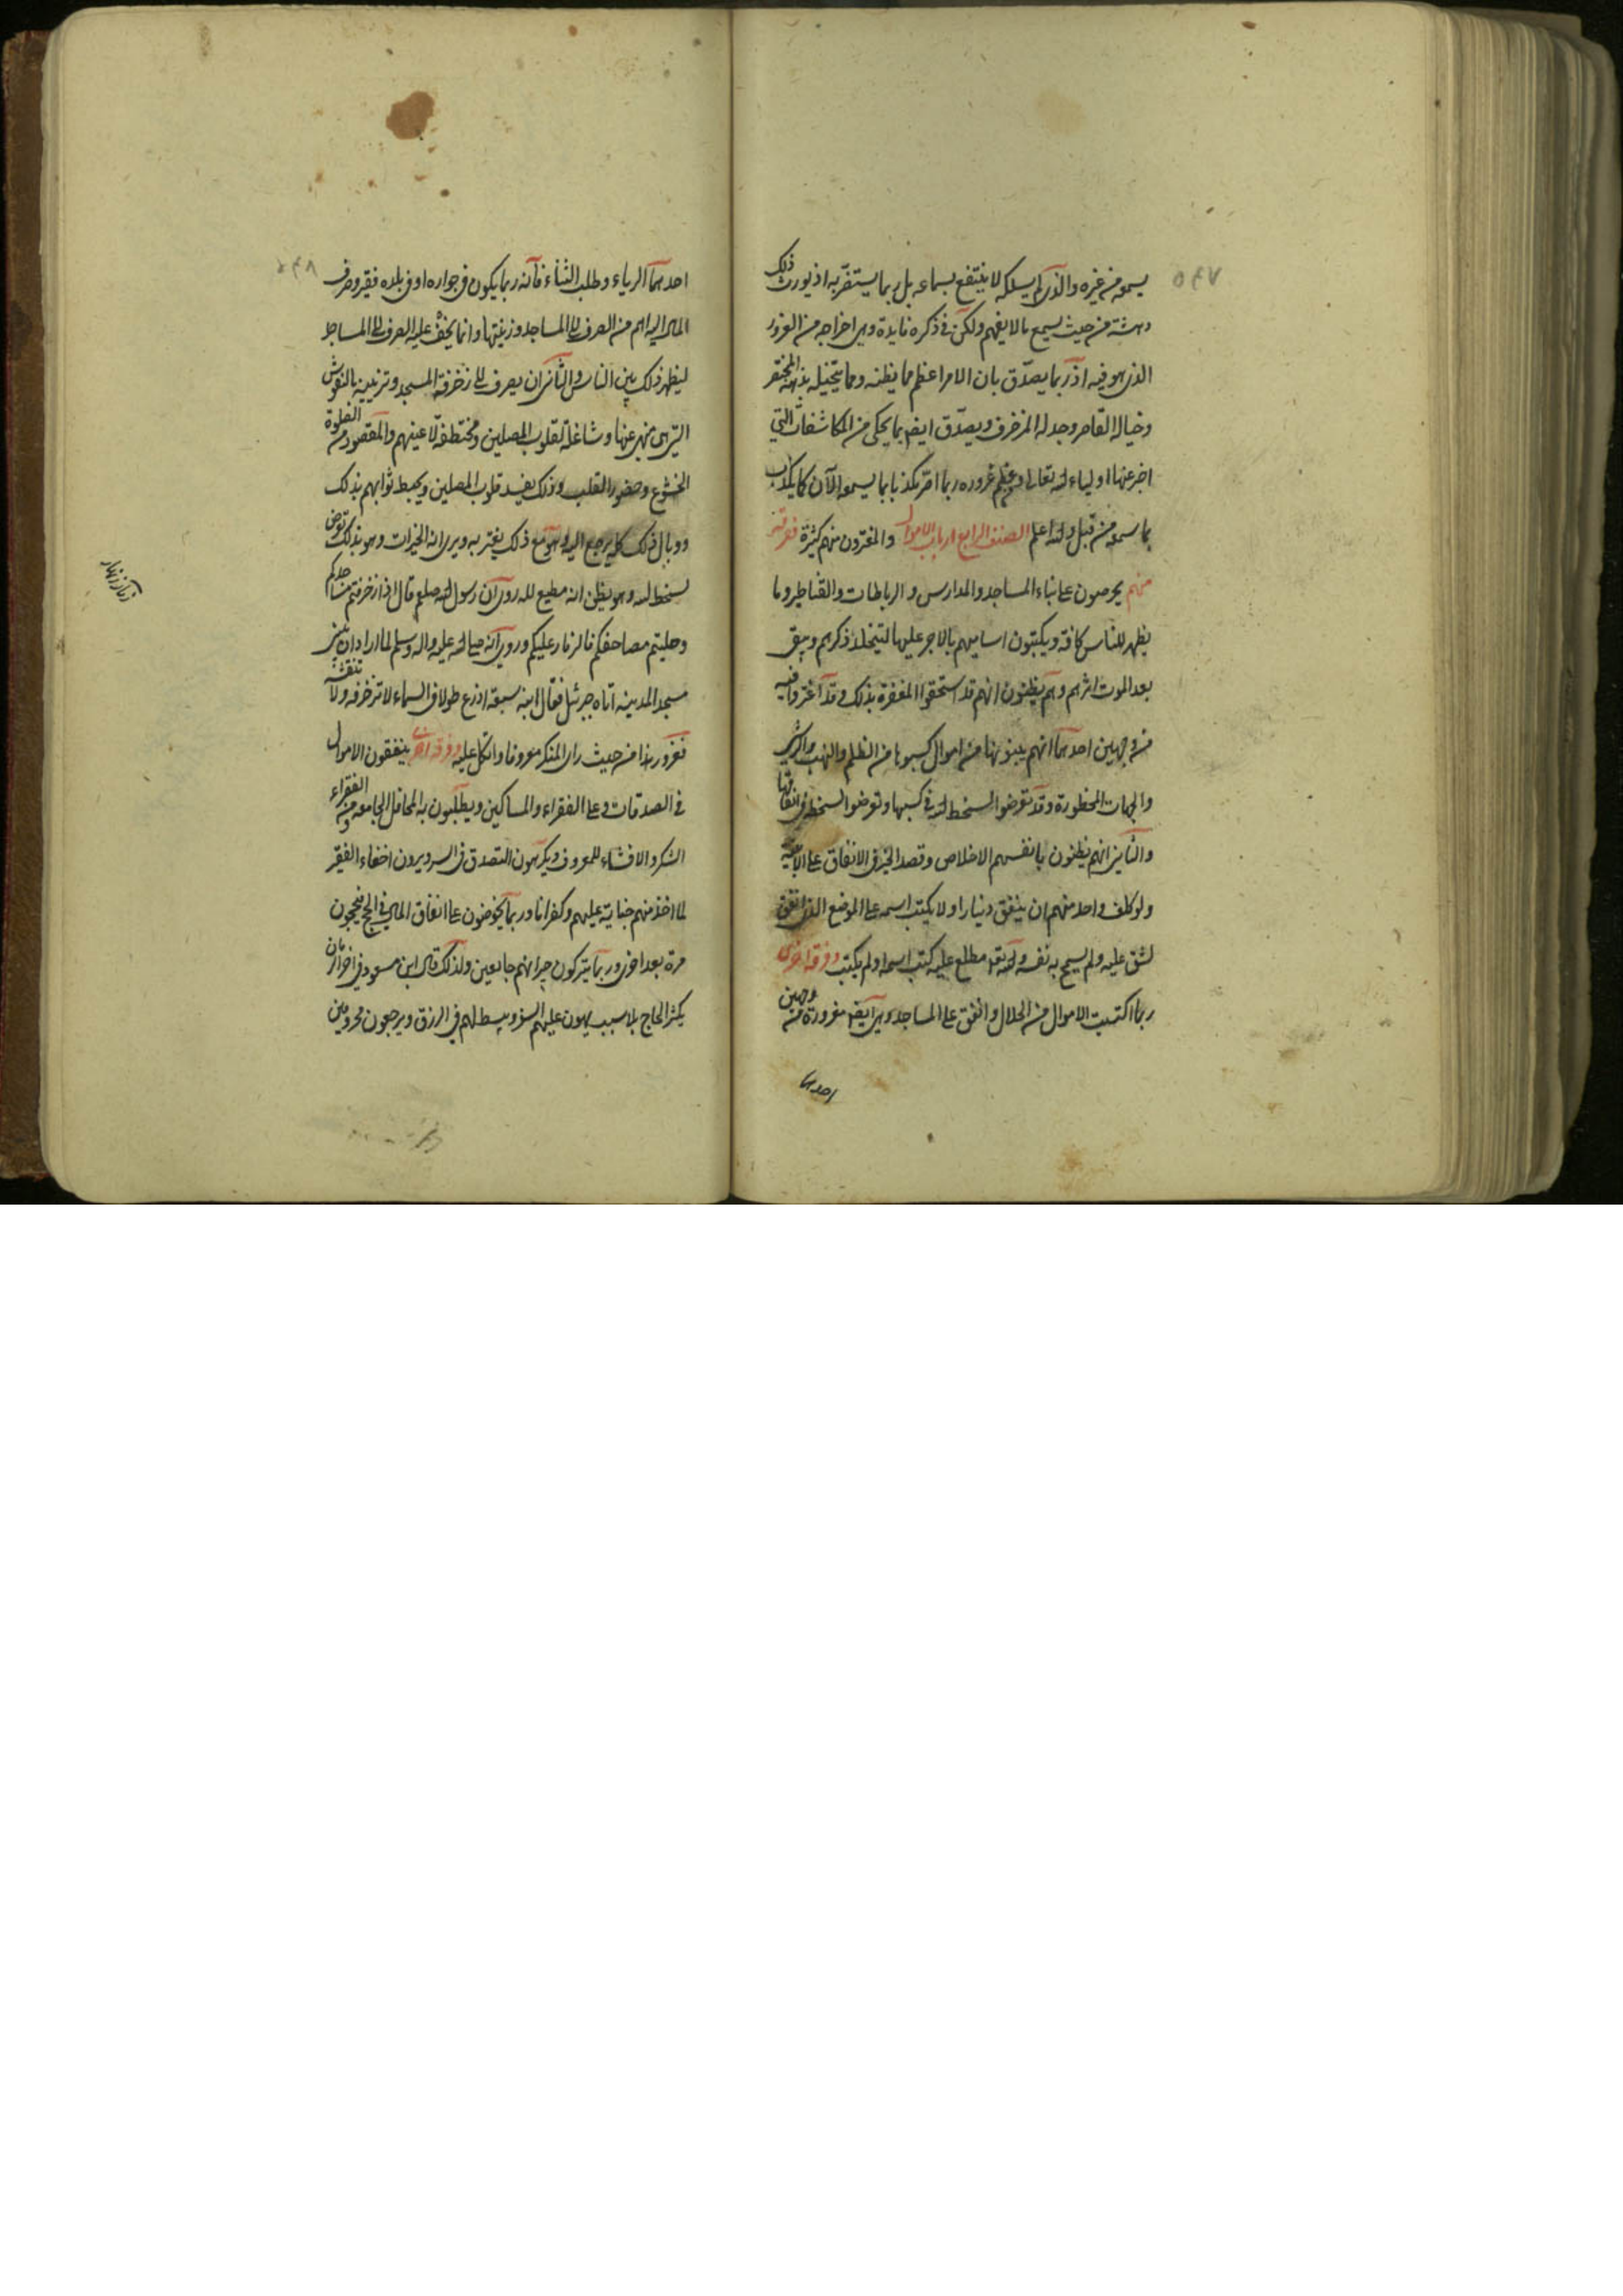 ٥٤٧
يسمعه من غيره والذي لم يسلكه لا ينتفع بسماعه بل ربما يستضر به اذ يورث ذلك
دهشة من حيث يسمع ما لا يفهم ولكن في ذكره فايدة وهي اخراجه من الغرور
الذي هو فيه اذ ربما يصدق بان الامر اعظم مما يظنه ومما يتخيله بذهنه المختصر
وخياله القاصر وجدله المزخرف ويصدق ايضا بما يحكى من المكاشفات التي
اخبر عنها اولياء الله تعالى و غروره ربما اصر مكذبا بما يسمعه الآن كما يكذب
بما سمعه من قبل والله اعلم الصنف الرابع ارباب الاموال والمغترون منهم كثيرة فرقة
منهم يحرصون على بناء المساجد والمدارس والرباطات والقناطير وما
يظهر للناس كافة ويكتبون اساميهم بالاجر عليها ليتخلد ذكرهم ويبقى
بعد الموت اثرهم وهم يظنون انهم قد استحقوا المغفرة بذلك وقد اغتروا فيه
من وجهين احدهما انهم يبنونها من اموال كسبوها من الظلم والنهب والرشى
والجهات المحظورة وقد تعرضوا لسخط الله في كسبها وتعرضوا لسخطه في انفاقها
والثاني انهم يظنون بانفسهم الاخلاص وقصد الخير في الانفاق على الابنية
ولو كلف واحد منهم ان ينفق دينارا ولا يكتب اسمه على الموضع الذي انفق
لشق عليه ولم يسمح به نفسه والله تعالى مطلع عليه كتب اسمه او لم يكتب وفرقة اخرى
ربما اكتسبت الاموال من الحلال وانفق على المساجد وهي ايضا مغرورة من وجهين
احدهما
٥٤٨
احدهما الرياء وطلب الثناء فانه ربما يكون في جواره او في بلده فقير وصرف
المال اليه اهم من الصرف الى المساجد وزينتها وانما يخف عليه الصرف الى المساجد
ليظهر ذلك بين الناس والثاني ان يصرف الى زخرفة المسجد وتزيينه بالنقوش
التي هي منهي عنها وشاغلة لقلوب المصلين ومختطفة لاعينهم والمقصود من الصلوة
الخشوع وحضور القلب وذلك يفسد قلوب المصلين ويحبط ثوابهم بذلك
ووبال ذلك كله يرجع اليه وهو مع ذلك يغتر به ويرى انه الخيرات وهو بذلك تعرض
لسخط الله وهو يظن انه مطيع لله روي ان رسول الله صلعم قال اذا زخرفتم مساجدكم
وحليتم مصاحفكم فالزنار عليكم وروي انه صلى الله عليه واله وسلم لما اراد ان يبني
مسجد المدينة اتاه جبرئيل فقال ابنه سبعة اذرع طولا في السماء لا تزخرفه ولا تنقشه
فغرور هذا من حيث راى المنكر معروفا واتكل عليه وفرقة اخرى ينفقون الاموال
في الصدقات وعلى الفقراء والمساكين ويطلبون به المحافل الجامعة ومن الفقراء
الشكر والافشاء للمعروف ويكرهون التصدق في السر ويرون اخفاء الفقر
لما اخذ منهم جناية عليهم وكفرانا وربما يحرصون على انفاق المال في الحج فيحجون
مرة بعد اخرى وربما يتركون جيرانهم جايعين ولذلك قال ابن مسعود في اخر الزمان
يكثر الحاج بلا سبب يهون عليهم السفر ويبسط لهم في الرزق ويرجعون محرومين